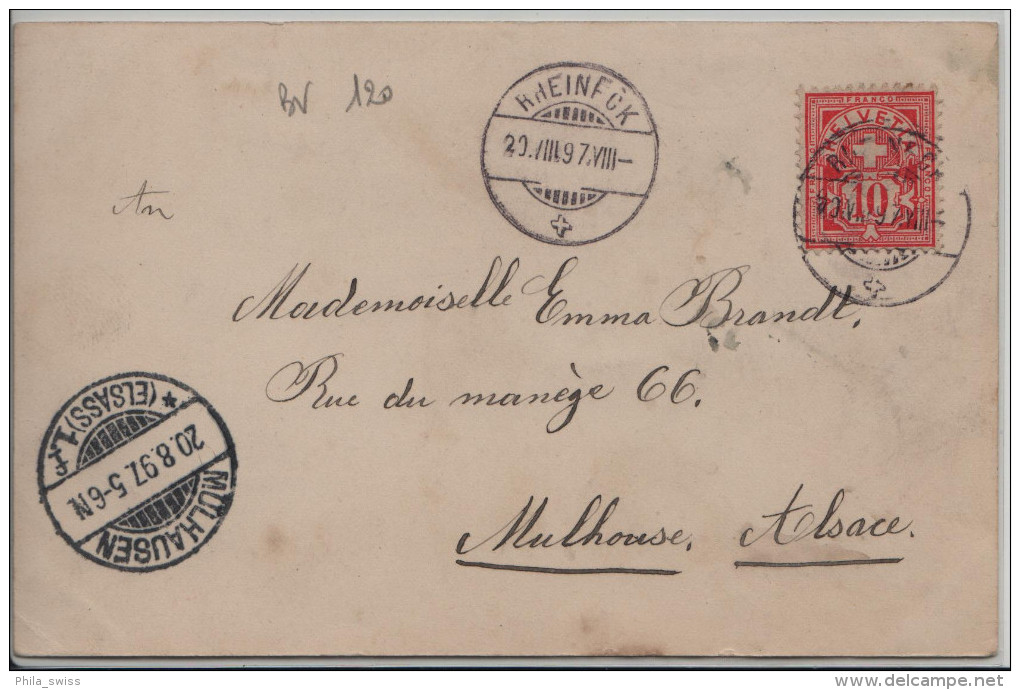 BV 120
RHEINECK
20.VIII.97.VIII—
FRANCO
HELVETIA
10
An
Mademoiselle Emma Brandt,
Rue du manège 66.
Mulhouse, Alsace.
MÜLHAUSEN
20.8.97. 5-6N
* (ELSASS) 1.
Phila_swiss
delcampe.net